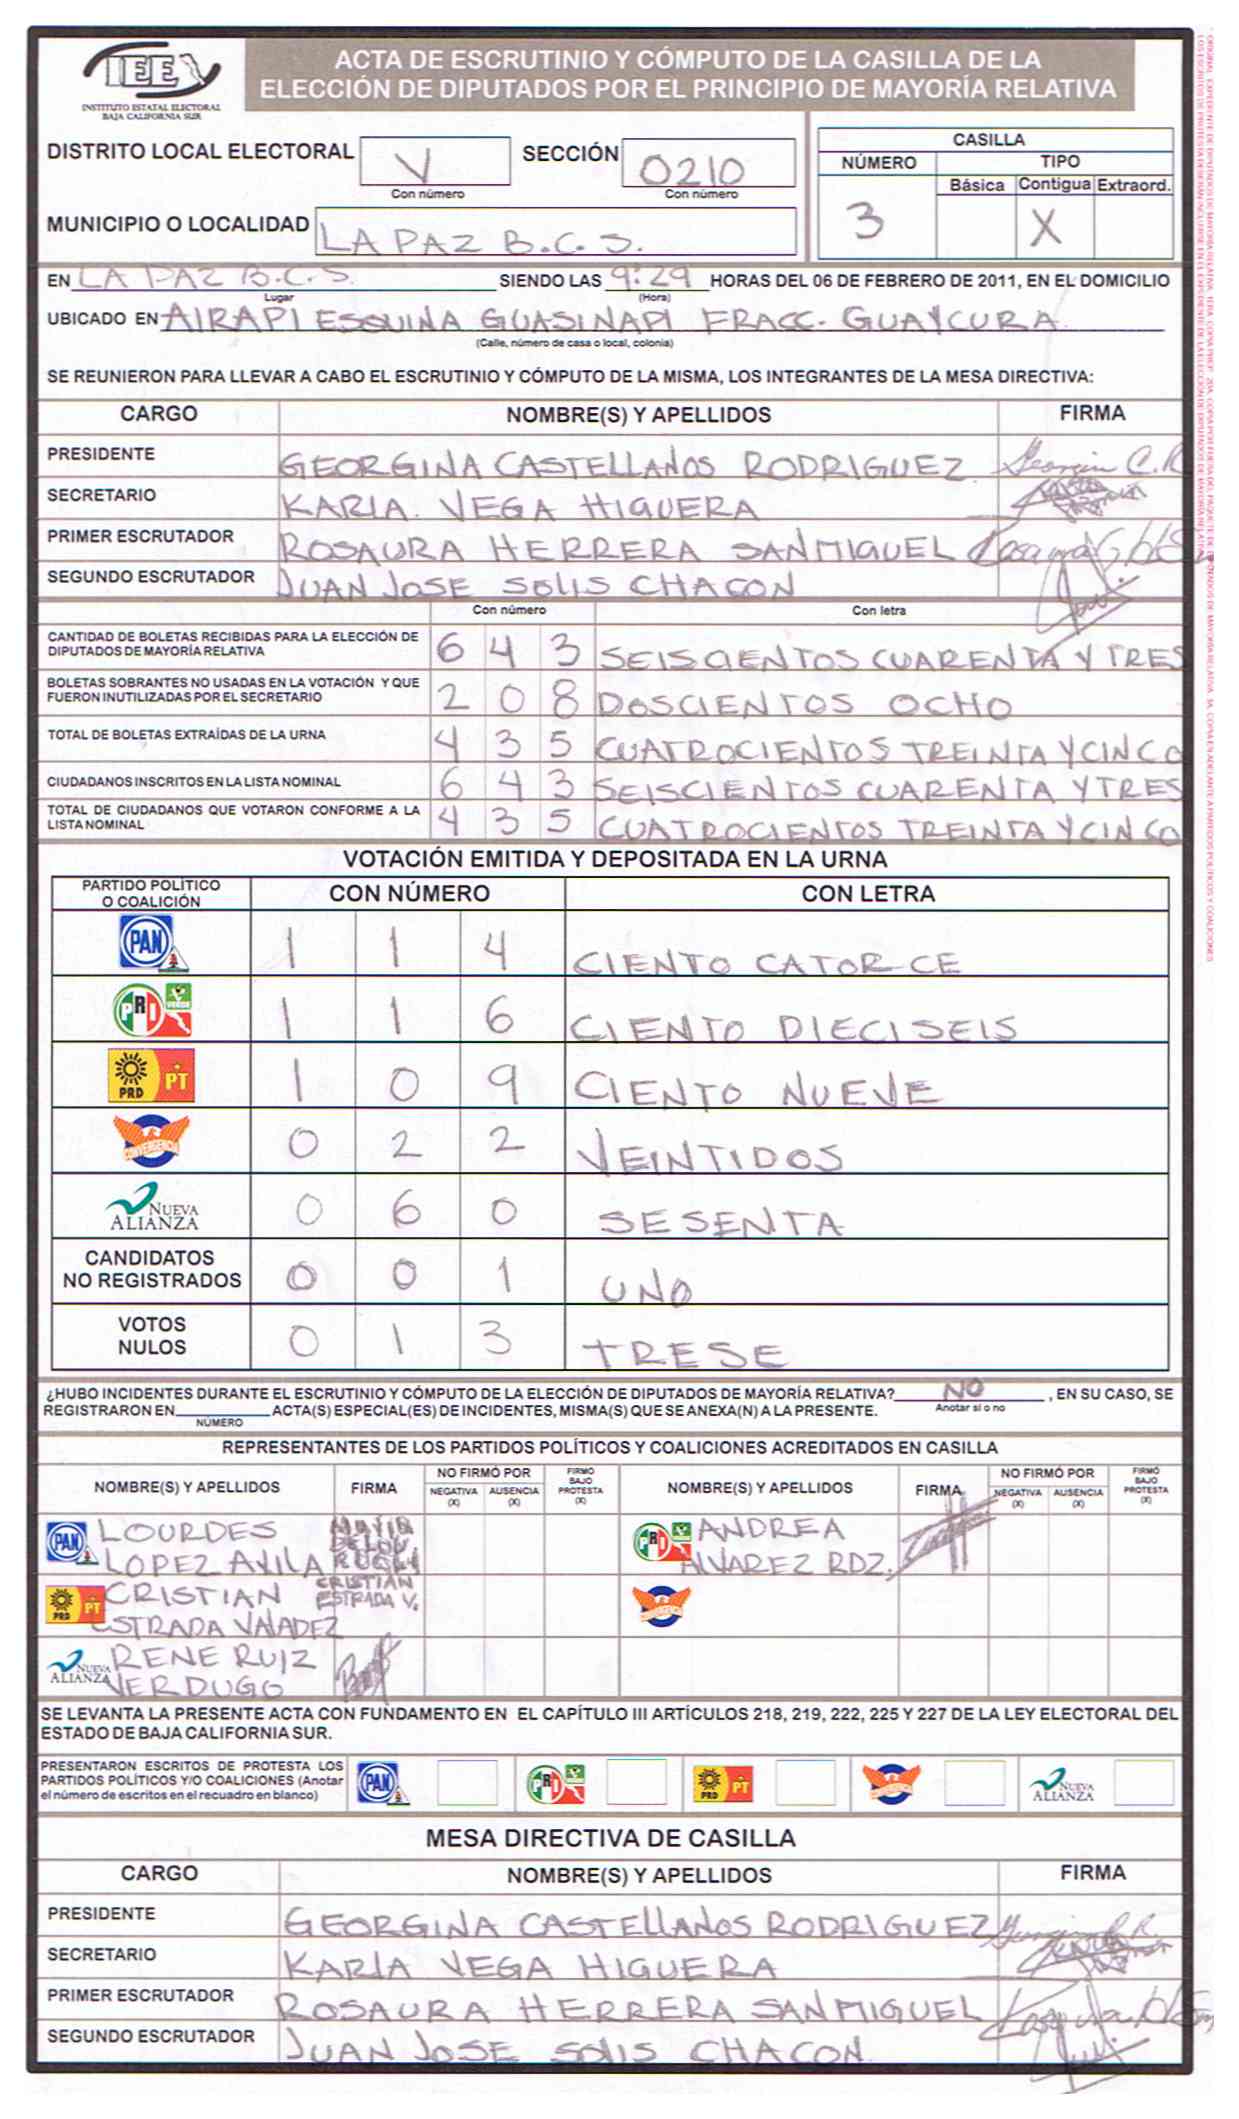 IEE
INSTITUTO ESTATAL ELECTORAL
BAJA CALIFORNIA SUR
ACTA DE ESCRUTINIO Y CÓMPUTO DE LA CASILLA DE LA
ELECCIÓN DE DIPUTADOS POR EL PRINCIPIO DE MAYORÍA RELATIVA
DISTRITO LOCAL ELECTORAL V SECCIÓN 0210
Con número Con número
MUNICIPIO O LOCALIDAD LA PAZ B.C.S.
CASILLA
NÚMERO TIPO
Básica Contigua Extraord.
3 X
EN LA PAZ B.C.S. SIENDO LAS 9:29 HORAS DEL 06 DE FEBRERO DE 2011, EN EL DOMICILIO
Lugar (Hora)
UBICADO EN AIRAPI ESQUINA GUASINAPI FRACC. GUAYCURA
(Calle, número de casa o local, colonia)
SE REUNIERON PARA LLEVAR A CABO EL ESCRUTINIO Y CÓMPUTO DE LA MISMA, LOS INTEGRANTES DE LA MESA DIRECTIVA:
CARGO NOMBRE(S) Y APELLIDOS FIRMA
PRESIDENTE GEORGINA CASTELLANOS RODRIGUEZ
SECRETARIO KARLA VEGA HIGUERA
PRIMER ESCRUTADOR ROSAURA HERRERA SANMIGUEL
SEGUNDO ESCRUTADOR JUAN JOSE SOLIS CHACON
Con número Con letra
CANTIDAD DE BOLETAS RECIBIDAS PARA LA ELECCIÓN DE
DIPUTADOS DE MAYORÍA RELATIVA 6 4 3 SEISCIENTOS CUARENTA Y TRES
BOLETAS SOBRANTES NO USADAS EN LA VOTACIÓN Y QUE
FUERON INUTILIZADAS POR EL SECRETARIO 2 0 8 DOSCIENTOS OCHO
TOTAL DE BOLETAS EXTRAÍDAS DE LA URNA 4 3 5 CUATROCIENTOS TREINTA Y CINCO
CIUDADANOS INSCRITOS EN LA LISTA NOMINAL 6 4 3 SEISCIENTOS CUARENTA Y TRES
TOTAL DE CIUDADANOS QUE VOTARON CONFORME A LA
LISTA NOMINAL 4 3 5 CUATROCIENTOS TREINTA Y CINCO
VOTACIÓN EMITIDA Y DEPOSITADA EN LA URNA
PARTIDO POLÍTICO
O COALICIÓN CON NÚMERO CON LETRA
PAN 1 1 4 CIENTO CATORCE
PRI VERDE 1 1 6 CIENTO DIECISEIS
PRD PT 1 0 9 CIENTO NUEVE
CONVERGENCIA 0 2 2 VEINTIDOS
NUEVA
ALIANZA 0 6 0 SESENTA
CANDIDATOS
NO REGISTRADOS 0 0 1 UNO
VOTOS
NULOS 0 1 3 TRESE
¿HUBO INCIDENTES DURANTE EL ESCRUTINIO Y CÓMPUTO DE LA ELECCIÓN DE DIPUTADOS DE MAYORÍA RELATIVA? NO, EN SU CASO, SE
Anotar si o no
REGISTRARON EN ACTA(S) ESPECIAL(ES) DE INCIDENTES, MISMA(S) QUE SE ANEXA(N) A LA PRESENTE.
NÚMERO
REPRESENTANTES DE LOS PARTIDOS POLÍTICOS Y COALICIONES ACREDITADOS EN CASILLA
NOMBRE(S) Y APELLIDOS FIRMA NO FIRMÓ POR NEGATIVA (X) AUSENCIA (X) FIRMÓ BAJO PROTESTA (X) NOMBRE(S) Y APELLIDOS FIRMA NO FIRMÓ POR NEGATIVA (X) AUSENCIA (X) FIRMÓ BAJO PROTESTA (X)
PAN LOURDES
LOPEZ AVILA
PRI VERDE ANDREA
ALVAREZ RDZ.
PRD PT CRISTIAN
ESTRADA VALADEZ
CRISTIAN
ESTRADA V.
CONVERGENCIA
NUEVA
ALIANZA RENE RUIZ
VERDUGO
SE LEVANTA LA PRESENTE ACTA CON FUNDAMENTO EN EL CAPÍTULO III ARTÍCULOS 218, 219, 222, 225 Y 227 DE LA LEY ELECTORAL DEL
ESTADO DE BAJA CALIFORNIA SUR.
PRESENTARON ESCRITOS DE PROTESTA LOS
PARTIDOS POLÍTICOS Y/O COALICIONES (Anotar
el número de escritos en el recuadro en blanco)
PAN PRI VERDE PRD PT CONVERGENCIA NUEVA ALIANZA
MESA DIRECTIVA DE CASILLA
CARGO NOMBRE(S) Y APELLIDOS FIRMA
PRESIDENTE GEORGINA CASTELLANOS RODRIGUEZ
SECRETARIO KARLA VEGA HIGUERA
PRIMER ESCRUTADOR ROSAURA HERRERA SANMIGUEL
SEGUNDO ESCRUTADOR JUAN JOSE SOLIS CHACON